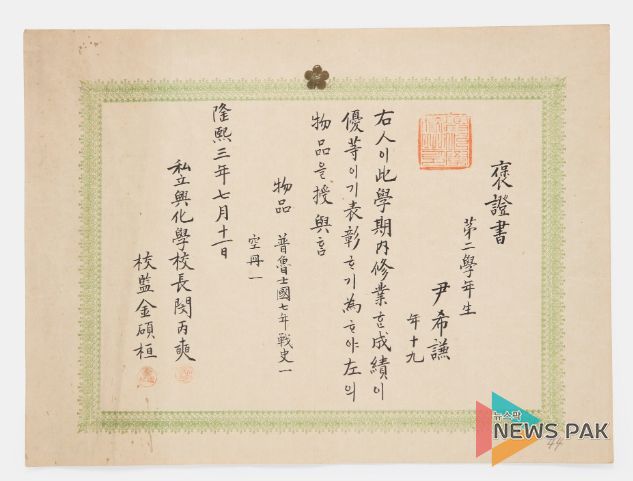 褒證書
第二學年生
尹希謙
年十九
右人이此學期內修業ᄒᆞᆫ成績이
優等이기表彰ᄒᆞ기為ᄒᆞ야左의
物品을授與ᄒᆞᆷ
物品 普魯士國七年戰史一
空冊一
隆熙三年七月十一日
私立興化學校長閔丙奭
校監金碩桓
뉴스팍
NEWS PAK
44